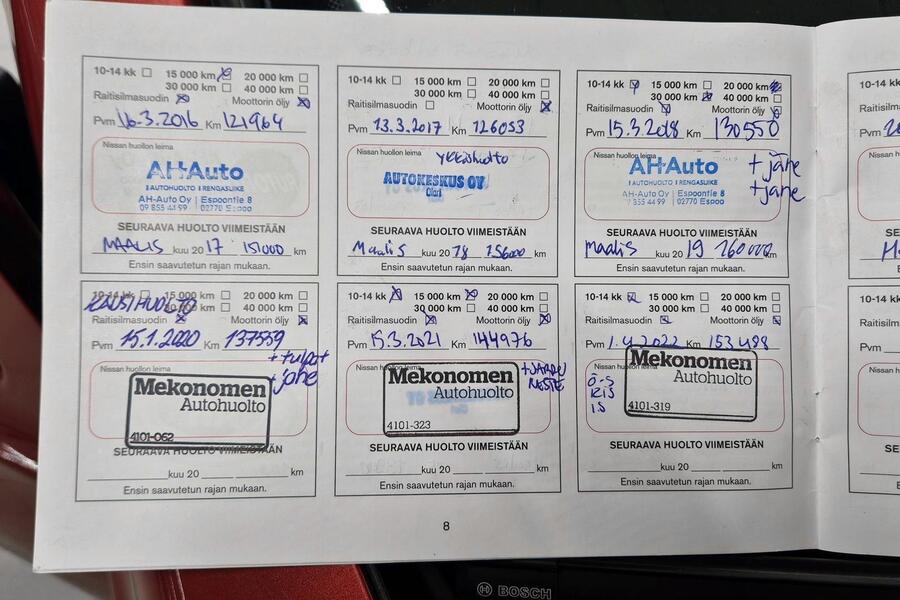 10-14 kk 15 000 km 20 000 km
30 000 km 40 000 km
Raitisilmasuodin Moottorin öljy
Pvm 16.3.2016 Km 121964
Nissan huollon leima
AH-Auto
AUTOHUOLTO RENGASLIIKE
AH-Auto Oy Espoontie 8
09 855 44 99 02770 Espoo
SEURAAVA HUOLTO VIIMEISTÄÄN
MAALIS kuu 20 17 151000 km
Ensin saavutetun rajan mukaan.
10-14 kk 15 000 km 20 000 km
30 000 km 40 000 km
Raitisilmasuodin Moottorin öljy
Pvm 13.3.2017 Km 126053
Nissan huollon leima
AUTOKESKUS OY
Olari
SEURAAVA HUOLTO VIIMEISTÄÄN
Maalis kuu 20 18 156000 km
Ensin saavutetun rajan mukaan.
10-14 kk 15 000 km 20 000 km
30 000 km 40 000 km
Raitisilmasuodin Moottorin öljy
Pvm 15.3.2018 Km 130550
Nissan huollon leima
AH-Auto
+ jähe
+ jähe
AUTOHUOLTO RENGASLIIKE
AH-Auto Oy Espoontie 8
855 44 99 02770 Espoo
SEURAAVA HUOLTO VIIMEISTÄÄN
Maalis kuu 20 19 160000 km
Ensin saavutetun rajan mukaan.
KAUSIHUOLTO 15 000 km 20 000 km
40 000 km
Raitisilmasuodin Moottorin öljy
Pvm 15.1.2020 Km 137559
+ tulpat
+ jähe
Nissan huollon leima
Mekonomen
Autohuolto
4101-062
SEURAAVA HUOLTO VIIMEISTÄÄN
kuu 20 km
Ensin saavutetun rajan mukaan.
10-14 kk 15 000 km 20 000 km
30 000 km 40 000 km
Raitisilmasuodin Moottorin öljy
Pvm 15.3.2021 Km 144976
Nissan huollon leima
+ JARRU
NESTE
Mekonomen
Autohuolto
4101-323
SEURAAVA HUOLTO VIIMEISTÄÄN
kuu 20 km
Ensin saavutetun rajan mukaan.
10-14 kk 15 000 km 20 000 km
30 000 km 40 000 km
Raitisilmasuodin Moottorin öljy
Pvm 1.4.2022 Km 153488
Nissan huollon leima
Mekonomen
Autohuolto
4101-319
SEURAAVA HUOLTO VIIMEISTÄÄN
kuu 20 km
Ensin saavutetun rajan mukaan.
8
10-14 kk
Raitisilma
Pvm
Nissan
10-14 kk
Raitisilma
Pvm
Nissan
BOSCH